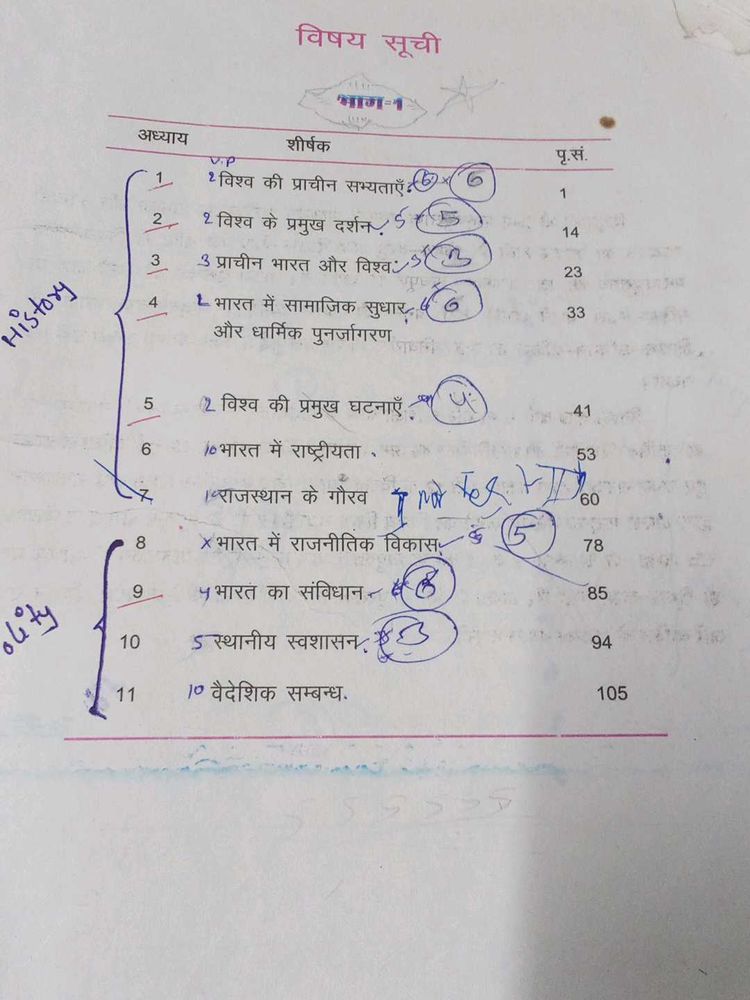 विषय सूची
भाग-1
अध्याय शीर्षक पृ.सं.
V.P
1 2 विश्व की प्राचीन सभ्यताएँ 6 x 6 1
2 2 विश्व के प्रमुख दर्शन 5 5 14
3 3 प्राचीन भारत और विश्व 3 23
4 2 भारत में सामाजिक सुधार 6 33
और धार्मिक पुनर्जागरण
History
5 2 विश्व की प्रमुख घटनाएँ 4 41
6 10 भारत में राष्ट्रीयता 53
7 10 राजस्थान के गौरव 60
8 x भारत में राजनीतिक विकास 5 78
9 4 भारत का संविधान 85
10 5 स्थानीय स्वशासन 3 94
olity
11 10 वैदेशिक सम्बन्ध 105